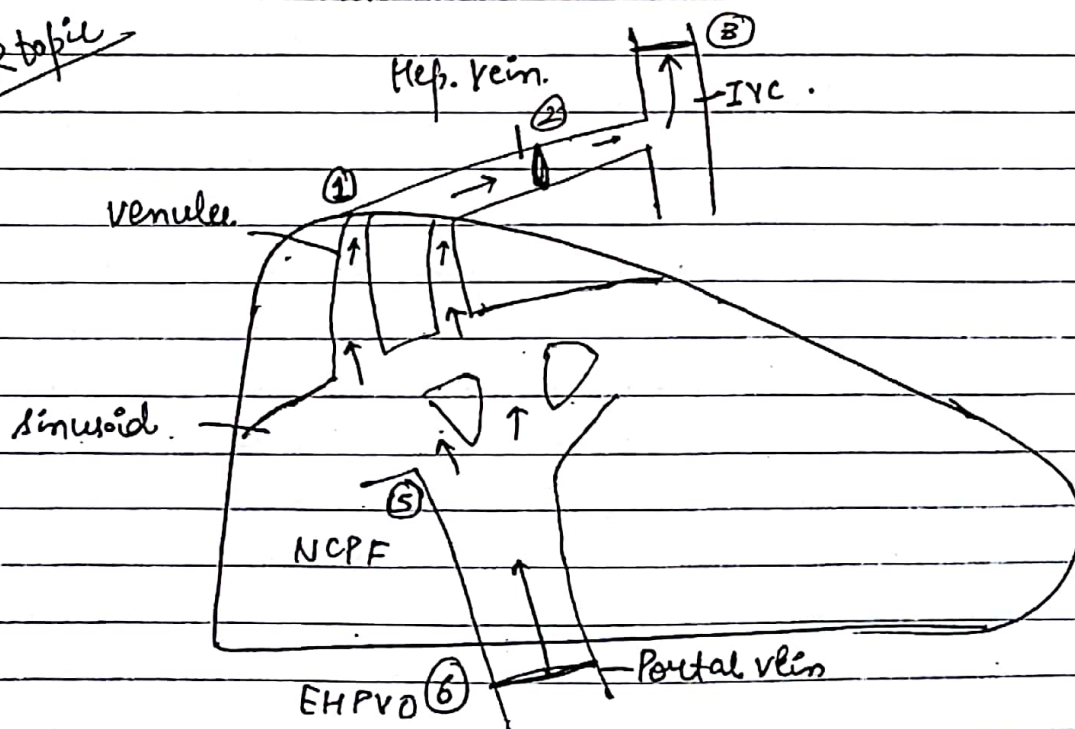 ③
Hep. vein.
IVC.
②
①
venule
sinusoid.
⑤
NCPF
EHPVO ⑥ Portal vein